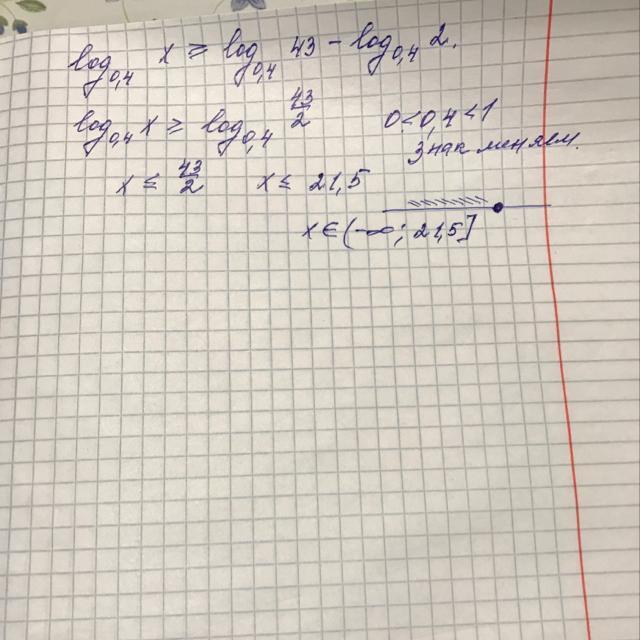 log₀,₄ x ≥ log₀,₄ 43 - log₀,₄ 2.
log₀,₄ x ≥ log₀,₄ 43/2 0<0,4<1
Знак меняем.
x ≤ 43/2 x ≤ 21,5
x ∈ (-∞; 21,5]